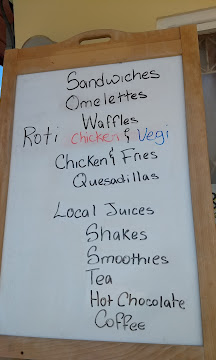 Sandwiches
Omelettes
Waffles
Roti chicken & Vegi
Chicken & Fries
Quesadillas
Local Juices
Shakes
Smoothies
Tea
Hot Chocolate
Coffee